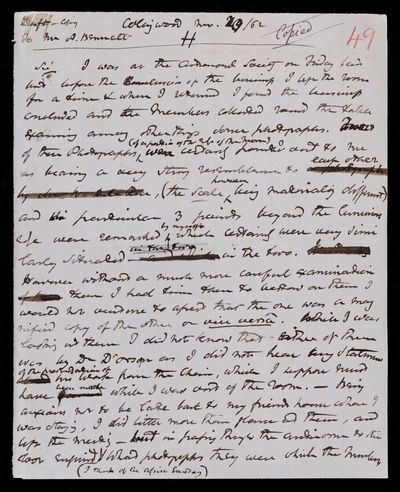 Draft Copy Collingwood Nov. /62 Copied 49
To Mr A. Bennett
Sir I was at the Astronomical Society on Friday last
but before the conclusion of the meeting I left the room
for a time & when I returned I found the meeting
concluded and the Members collected round the table
examining among other things some photographs. Two
(of a portion of the edge of the Moon)
of these Photographs, were pointed out to me
as bearing a very strong resemblance to each other
however
(the scale being materially different)
and in particular 3 points beyond the luminous
by myself
edge were remarked which certainly were very simi
larly situated in the two.
However without a much more careful examination
them I had time then to bestow on them I
would not venture to assert that the one was a mag
nified copy of the other or vice versâ. While I was
looking at them I did not know that either of them
was by Dr as I did not hear any statement
from the Chair, which I suppose must
have been made while I was out of the room. — Being
anxious not to be late back to my friends house where I
was staying, I did little more than glance at them, and
left the meeting — but in passing through the anteroom to the
door enquired what photographs they were which the Members
(I think of the Asiatic Society)